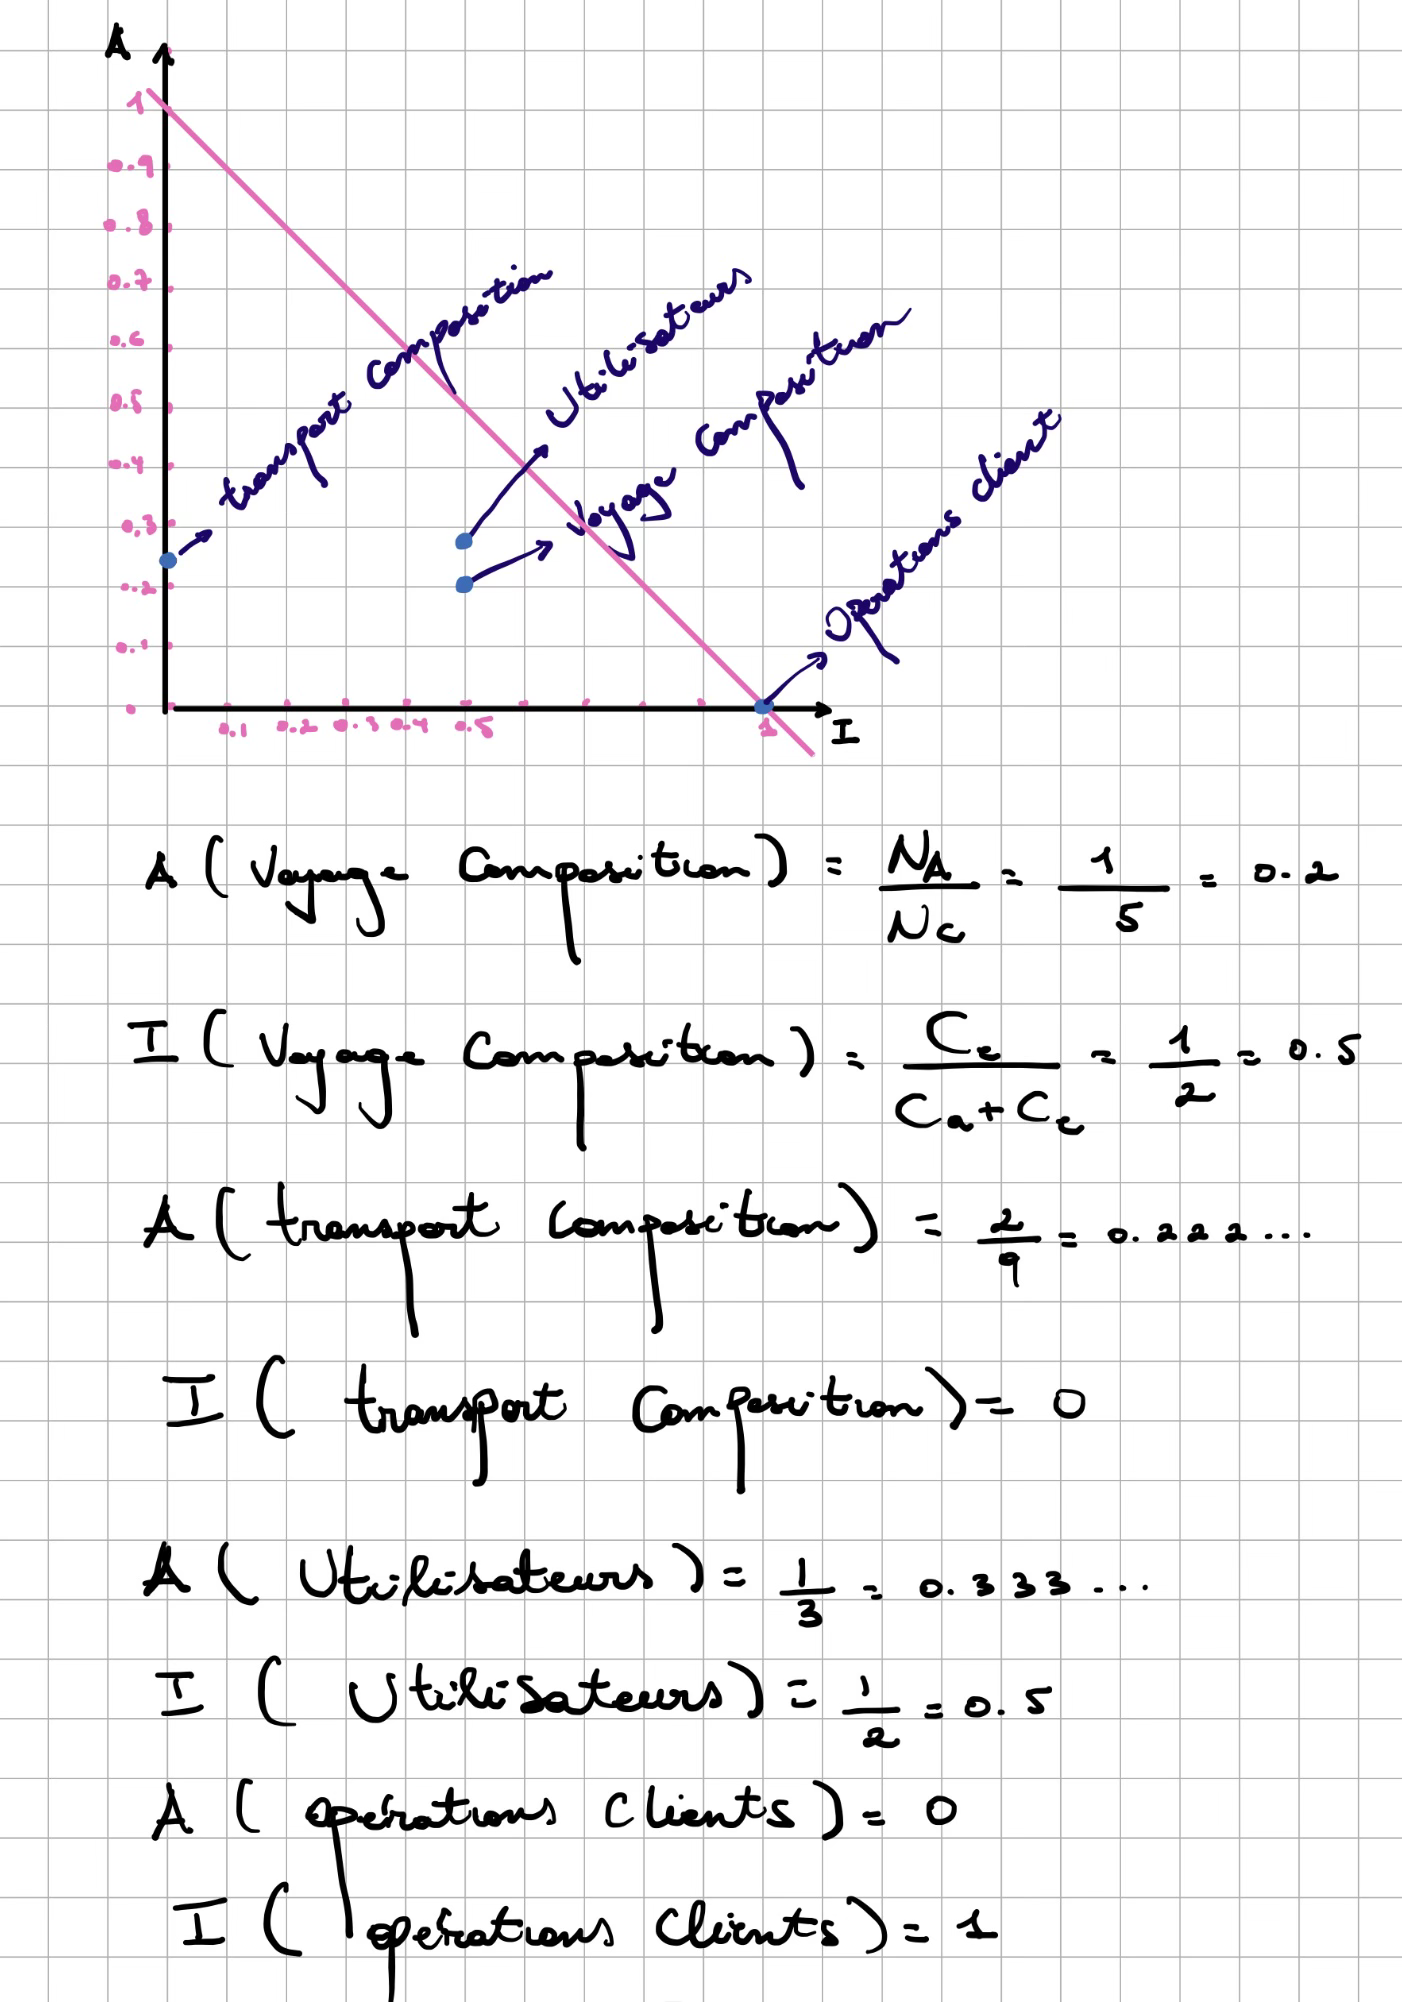 A
1
0.9
0.8
0.7
0.6
0.5
0.4
0.3
0.2
0.1
0
transport Composition
Utilisateurs
Voyage Composition
Operations client
0.1 0.2 0.3 0.4 0.5 1
I
A ( Voyage Composition ) = NA / Nc = 1 / 5 = 0.2
I ( Voyage Composition ) = Ce / Ca + Ce = 1 / 2 = 0.5
A ( transport Composition ) = 2 / 9 = 0.222...
I ( transport Composition ) = 0
A ( Utilisateurs ) = 1 / 3 = 0.333...
I ( Utilisateurs ) = 1 / 2 = 0.5
A ( opérations Clients ) = 0
I ( opérations Clients ) = 1